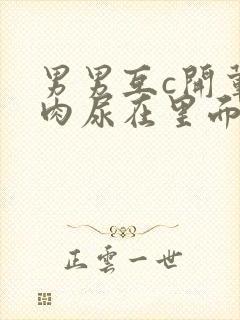 男男互c開
肉尿在里而
正雲一世